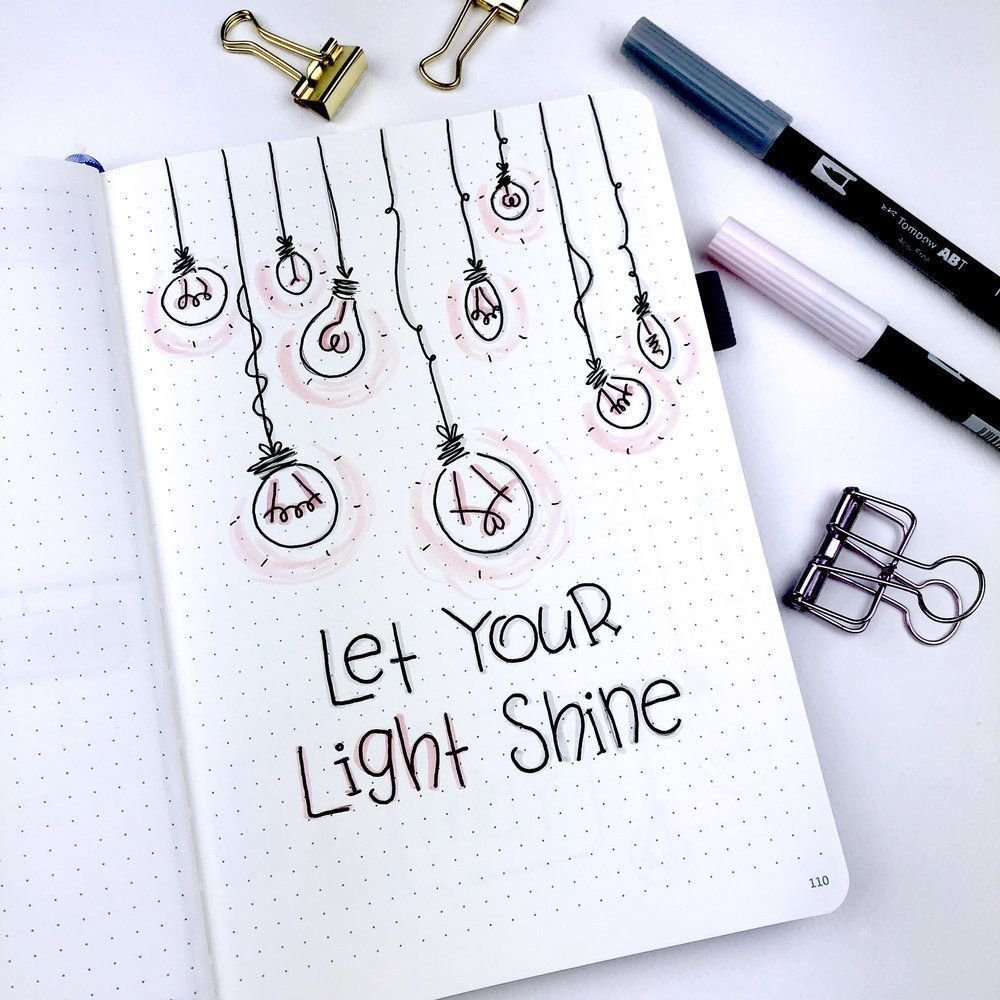 Tombow ABT
Let YOUR
Light Shine
110